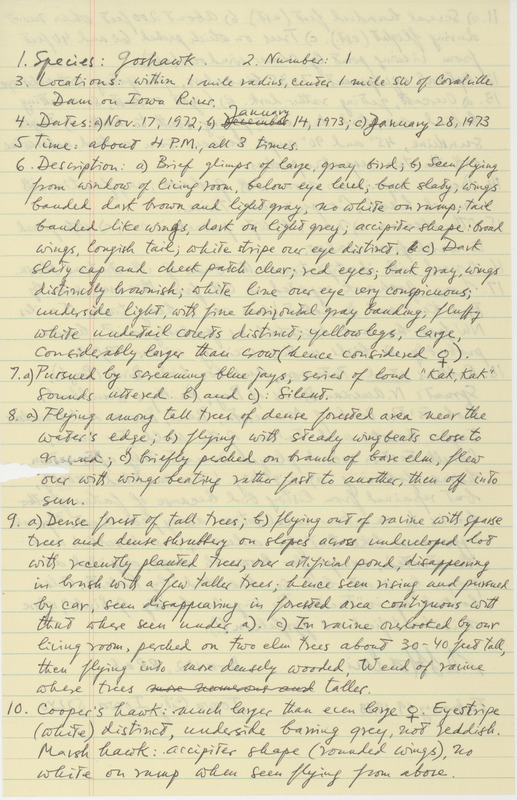 1. Species: Goshawk. 2. Number: 1
3. Locations: within 1 mile radius, center 1 mile SW of Coralville
Dam on Iowa River.
4. Dates: a) Nov. 17, 1972; b) December January 14, 1973; c) January 28, 1973
5 Time: about 4 P.M., all 3 times.
6. Description: a) Brief glimps of large, gray bird; b) Seen flying
from window of living room, below eye level; back slaty, wings
banded dark brown and light gray, no white on rump; tail
banded like wings, dark on light grey; accipiter shape: broad
wings, longish tail; white stripe over eye distinct, c) Dark
slaty cap and cheek patch clear; red eyes; back gray, wings
distinctly brownish; white line over eye very conspicuous;
underside light, with fine horizontal gray banding, fluffy
white undertail coverts distinct; yellow legs, large,
considerably larger than crow (hence considered ♀).
7. a) Pursued by screaming blue jays, series of loud "Kak, Kak"
sounds uttered b) and c): Silent.
8. a) Flying among tall trees of dense forested area near the
water's edge; b) flying with steady wingbeats close to
ground; c) briefly perched on branch of bare elm, flew
over with wings beating rather fast to another, then off into
sun.
9. a) Dense forest of tall trees; b) flying out of ravine with sparse
trees and dense shrubbery on slopes across undeveloped lot
with recently planted trees, over artificial pond, disappearing
in brush with a few taller trees; hence seen rising and pursued
by car, seen disappearing in forested area contiguous with
that where seen under a). c) In ravine overlooked by our
living room, perched on two elm trees about 30-40 feet tall,
then flying into more densely wooded, W end of ravine
where trees more numerous and taller.
10. Cooper's hawk: much larger than even large ♀. Eyestripe
(white) distinct, underside barring grey, not reddish.
Marsh hawk: accipiter shape (rounded wings), no
white on rump when seen flying from above.